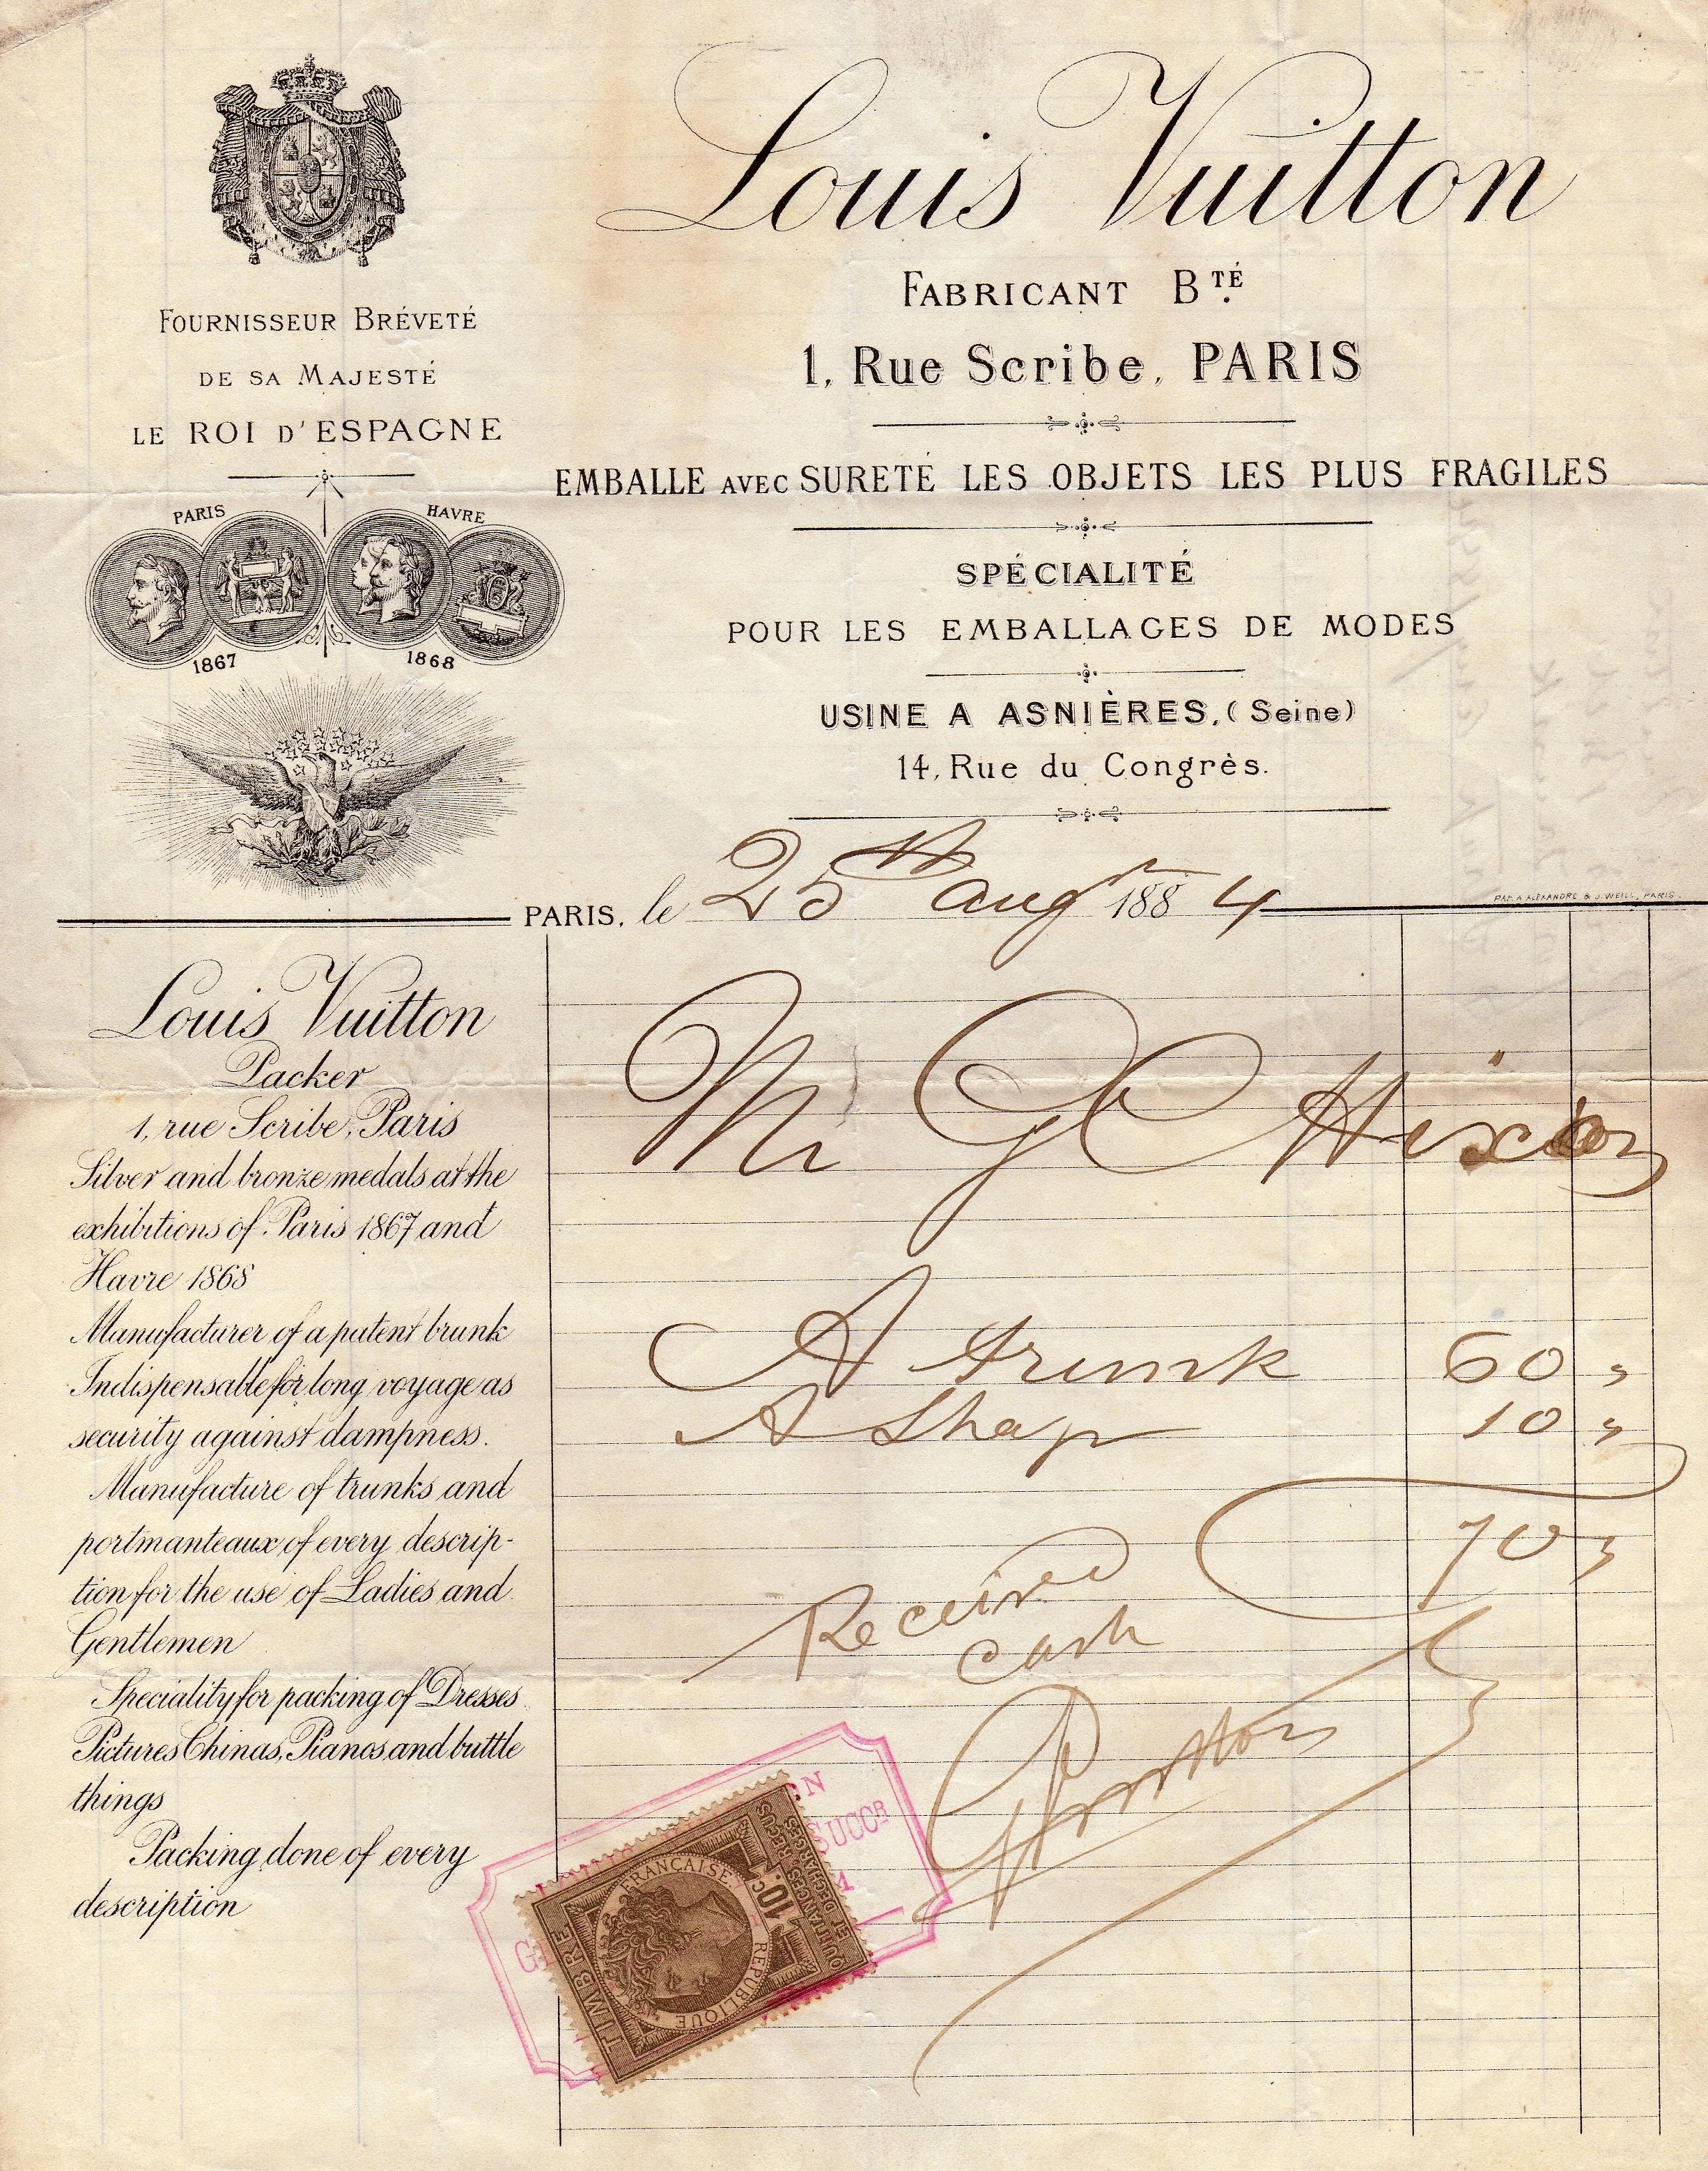 Louis Vuitton
FABRICANT BTÉ.
1, Rue Scribe, PARIS
EMBALLE AVEC SURETÉ LES OBJETS LES PLUS FRAGILES
SPÉCIALITÉ
POUR LES EMBALLAGES DE MODES
USINE A ASNIÈRES, (Seine)
14, Rue du Congrès.
FOURNISSEUR BRÉVETÉ
DE SA MAJESTÉ
LE ROI D'ESPAGNE
PARIS HAVRE
1867 1868
PARIS, le 25th augt 1884
PAP. A. ALEXANDRE & J. WEILL, PARIS
Louis Vuitton
Packer
1, rue Scribe, Paris
Silver and bronze medals at the
exhibitions of Paris 1867 and
Havre 1868
Manufacturer of a patent brunk
Indispensable for long voyage as
security against dampness.
Manufacture of trunks and
portmanteaux of every descrip-
tion for the use of Ladies and
Gentlemen
Speciality for packing of Dresses
Pictures Chinas, Pianos and buttle
things
Packing done of every
description
Mr G C Hixon
A trunk 60 "
A Shap 10 "
70 "
Received
cash
SUCCR
TIMBRE
RÉPUBLIQUE FRANÇAISE
10C.
QUITTANCES REÇUS
ET DÉCHARGES